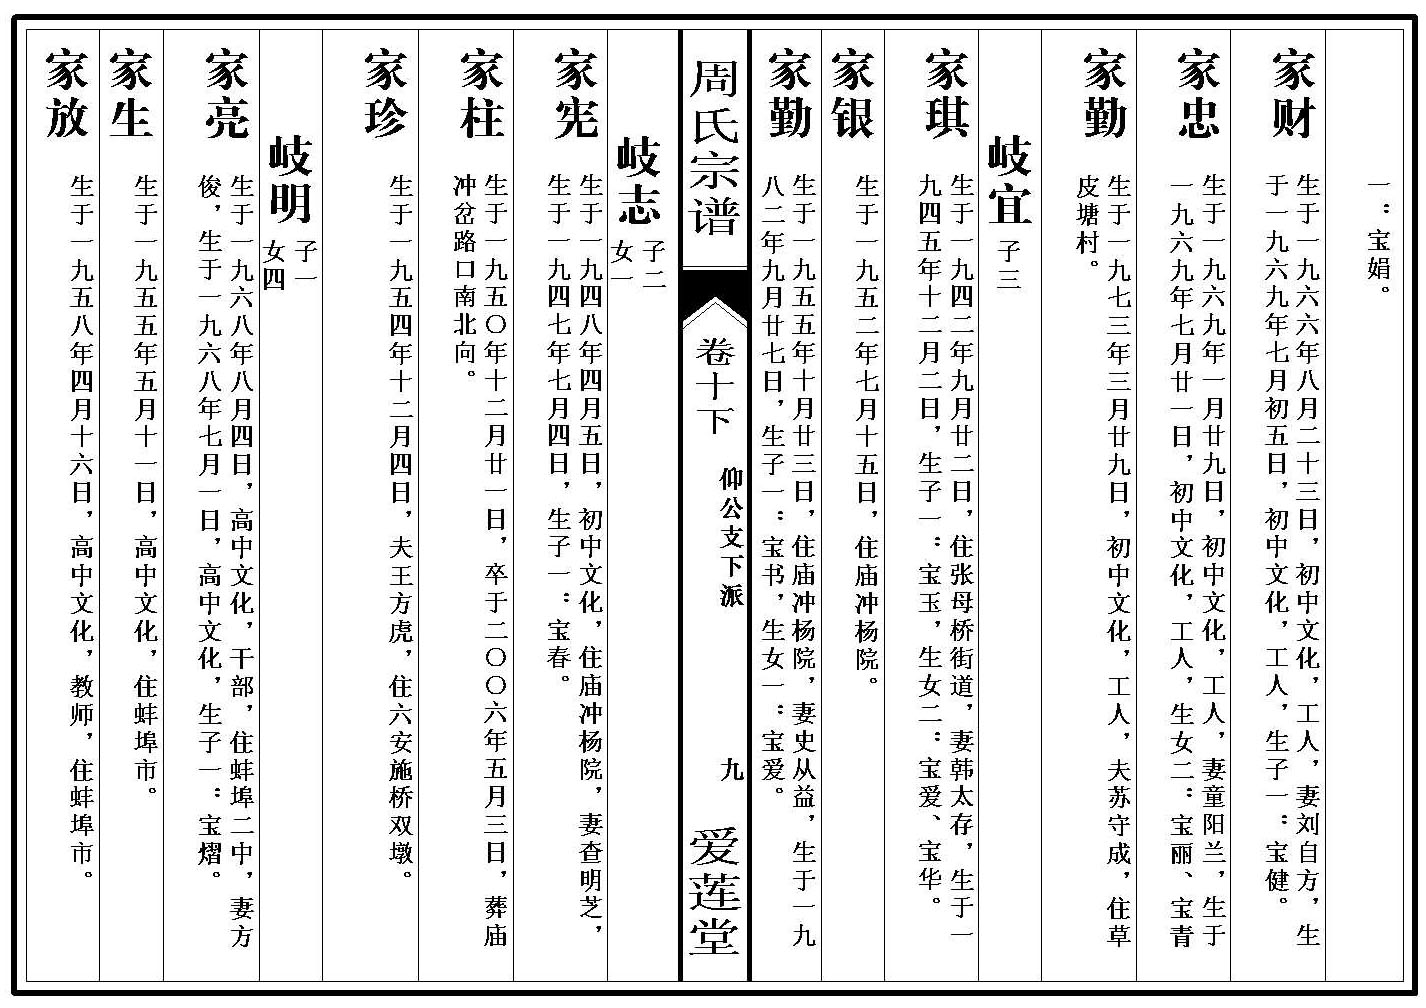 一：宝娟。
家财
生于一九六六年八月二十三日，初中文化，工人，妻刘自方，生
于一九六九年七月初五日，初中文化，工人，生子一：宝健。
家忠
生于一九六九年一月廿九日，初中文化，工人，妻童阳兰，生于
一九六九年七月廿一日，初中文化，工人，生女二：宝丽、宝青
家勤
生于一九七三年三月廿九日，初中文化，工人，夫苏守成，住草
皮塘村。
岐宜
子三
家琪
生于一九四二年九月廿二日，住张母桥街道，妻韩太存，生于一
九四五年十二月二日，生子一：宝玉，生女二：宝爱、宝华。
家银
生于一九五二年七月十五日，住庙冲杨院。
家勤
生于一九五五年十月廿三日，住庙冲杨院，妻史从益，生于一九
八二年九月廿七日，生子一：宝书，生女一：宝爱。
周氏宗谱
卷十下
仰公支下派
九
爱莲堂
岐志
子二
女一
家宪
生于一九四八年四月五日，初中文化，住庙冲杨院，妻查明芝，
生于一九四七年七月四日，生子一：宝春。
家柱
生于一九五〇年十二月廿一日，卒于二〇〇六年五月三日，葬庙
冲岔路口南北向。
家珍
生于一九五四年十二月四日，夫王方虎，住六安施桥双墩。
岐明
子一
女四
家亮
生于一九六八年八月四日，高中文化，干部，住蚌埠二中，妻方
俊，生于一九六八年七月一日，高中文化，生子一：宝熠。
家生
生于一九五五年五月十一日，高中文化，住蚌埠市。
家放
生于一九五八年四月十六日，高中文化，教师，住蚌埠市。